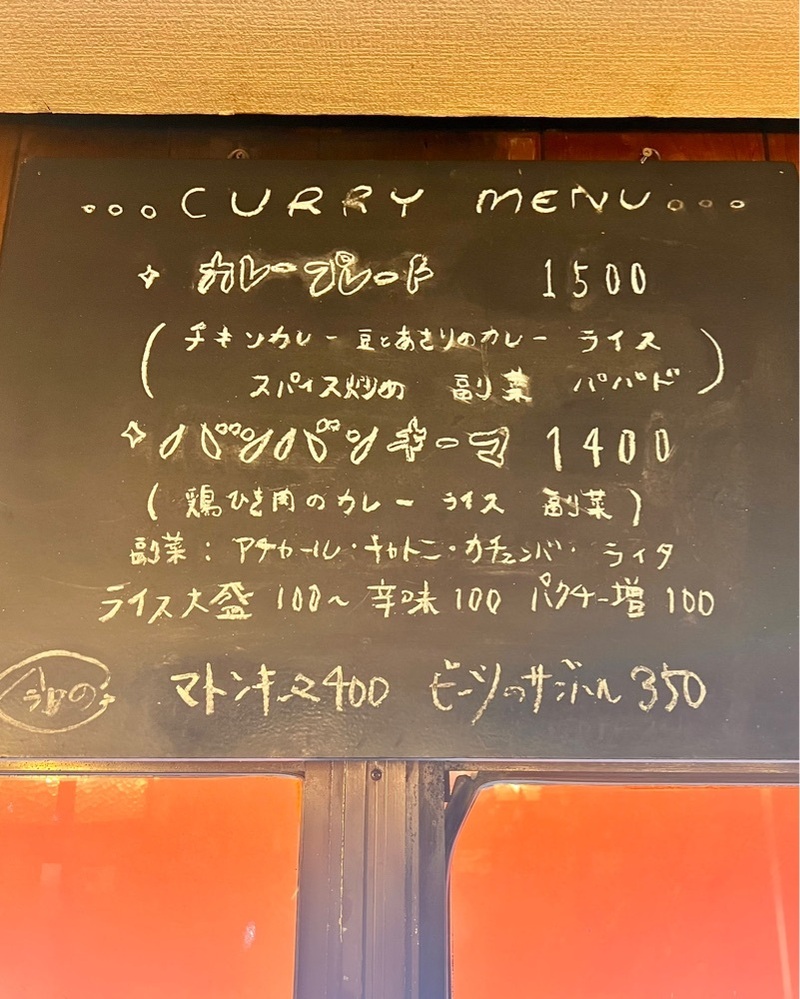 ...CURRY MENU...
カレープレート 1500
(チキンカレー 豆とあさりのカレー ライス
スパイス炒め 副菜 パパド)
バンバンキーマ 1400
(鶏ひき肉のカレー ライス 副菜)
副菜：アチャール・チャトニ・カチュンバ・ライタ
ライス大盛 100〜 辛味 100 パクチー増 100
マトンキーマ 400 ビーツのサブジール 350